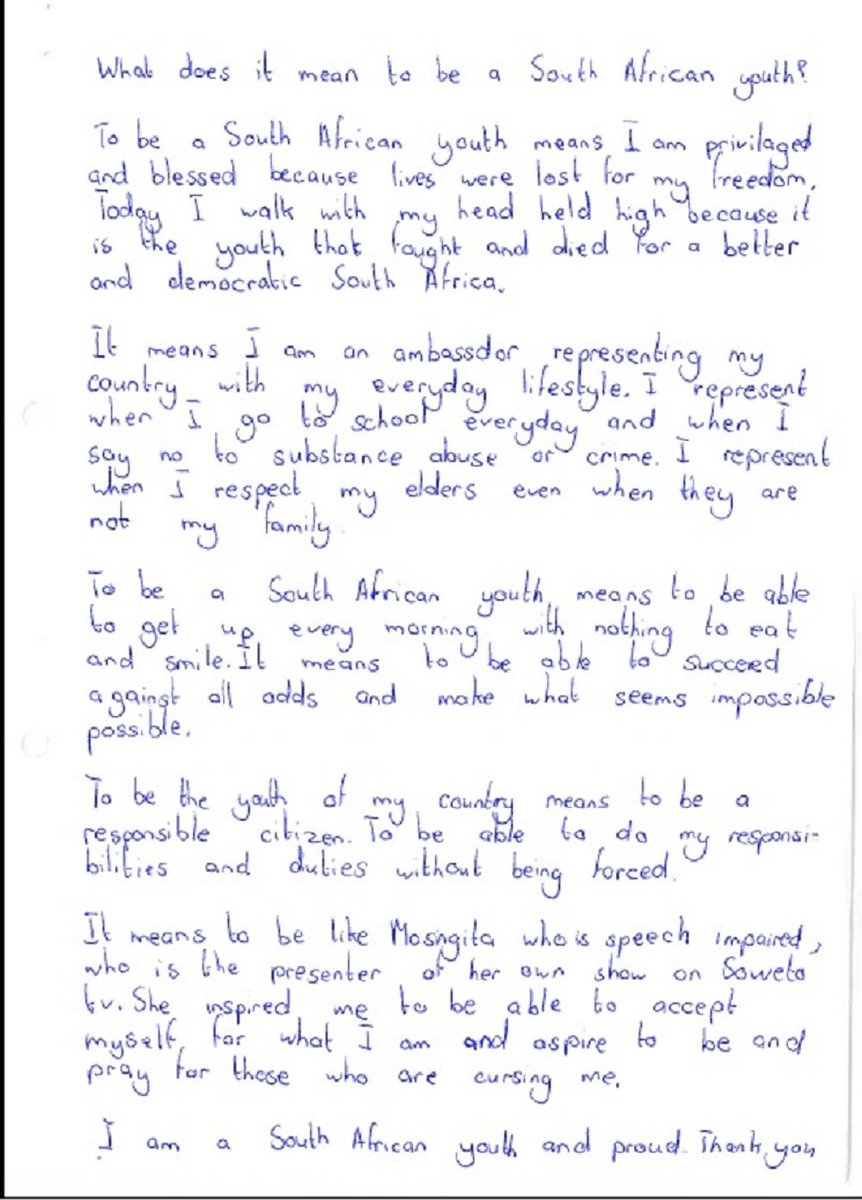 What does it mean to be a South African youth?
To be a South African youth means I am privilaged
and blessed because lives were lost for my freedom.
Today I walk with my head held high because it
is the youth that fought and died for a better
and democratic South Africa.
It means I am an ambassdor representing my
country with my everyday lifestyle. I represent
when I go to school everyday and when I
say no to substance abuse or crime. I represent
when I respect my elders even when they are
not my family.
To be a South African youth, means to be able
to get up every morning with nothing to eat
and smile. It means to be able to succeed
against all odds and make what seems impossible
possible.
To be the youth of my country means to be a
responsible citizen. To be able to do my responsi-
bilities and duties without being forced.
It means to be like Mosngita who is speech impaired,
who is the presenter of her own show on Soweto
tv. She inspired me to be able to accept
myself, for what I am and aspire to be and
pray for those who are cursing me.
I am a South African youth and proud. Thank you